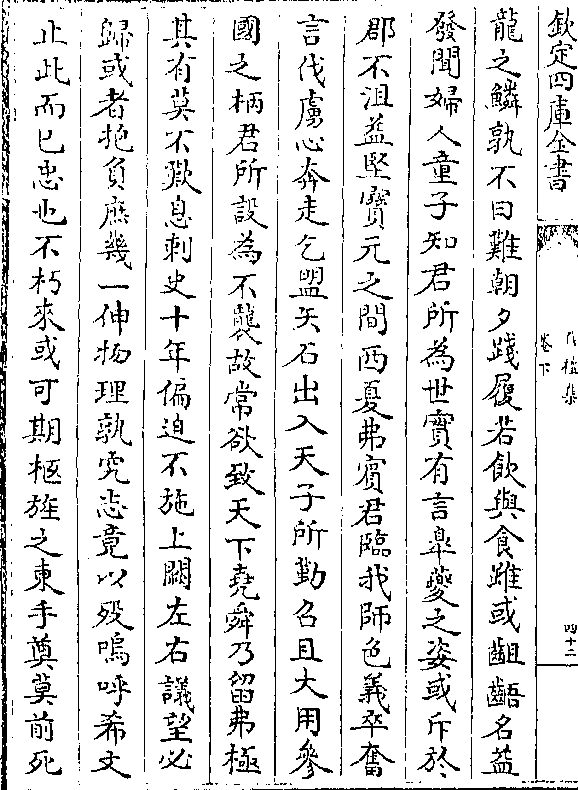 欽定四庫全書
伐檀集
卷下
四十二
龍之鱗孰不曰難朝夕踐履若飲與食雖或齟齬名益
發聞婦人童子知君所為世實有言皋夔之姿或斥於
郡不沮益堅寶元之間西夏弗賓君臨我師色義卒奮
言伐虜心奔走乞盟矢石出入天子所勤召且大用參
國之柄君所設為不襲故常欲致天下堯舜乃留弗極
其有莫不歎息刺史十年偪迫不施上闕左右議望必
歸或者抱負庶幾一伸物理孰究志竟以歿嗚呼希文
止此而已忠也不朽來或可期柩旌之東手奠莫前死